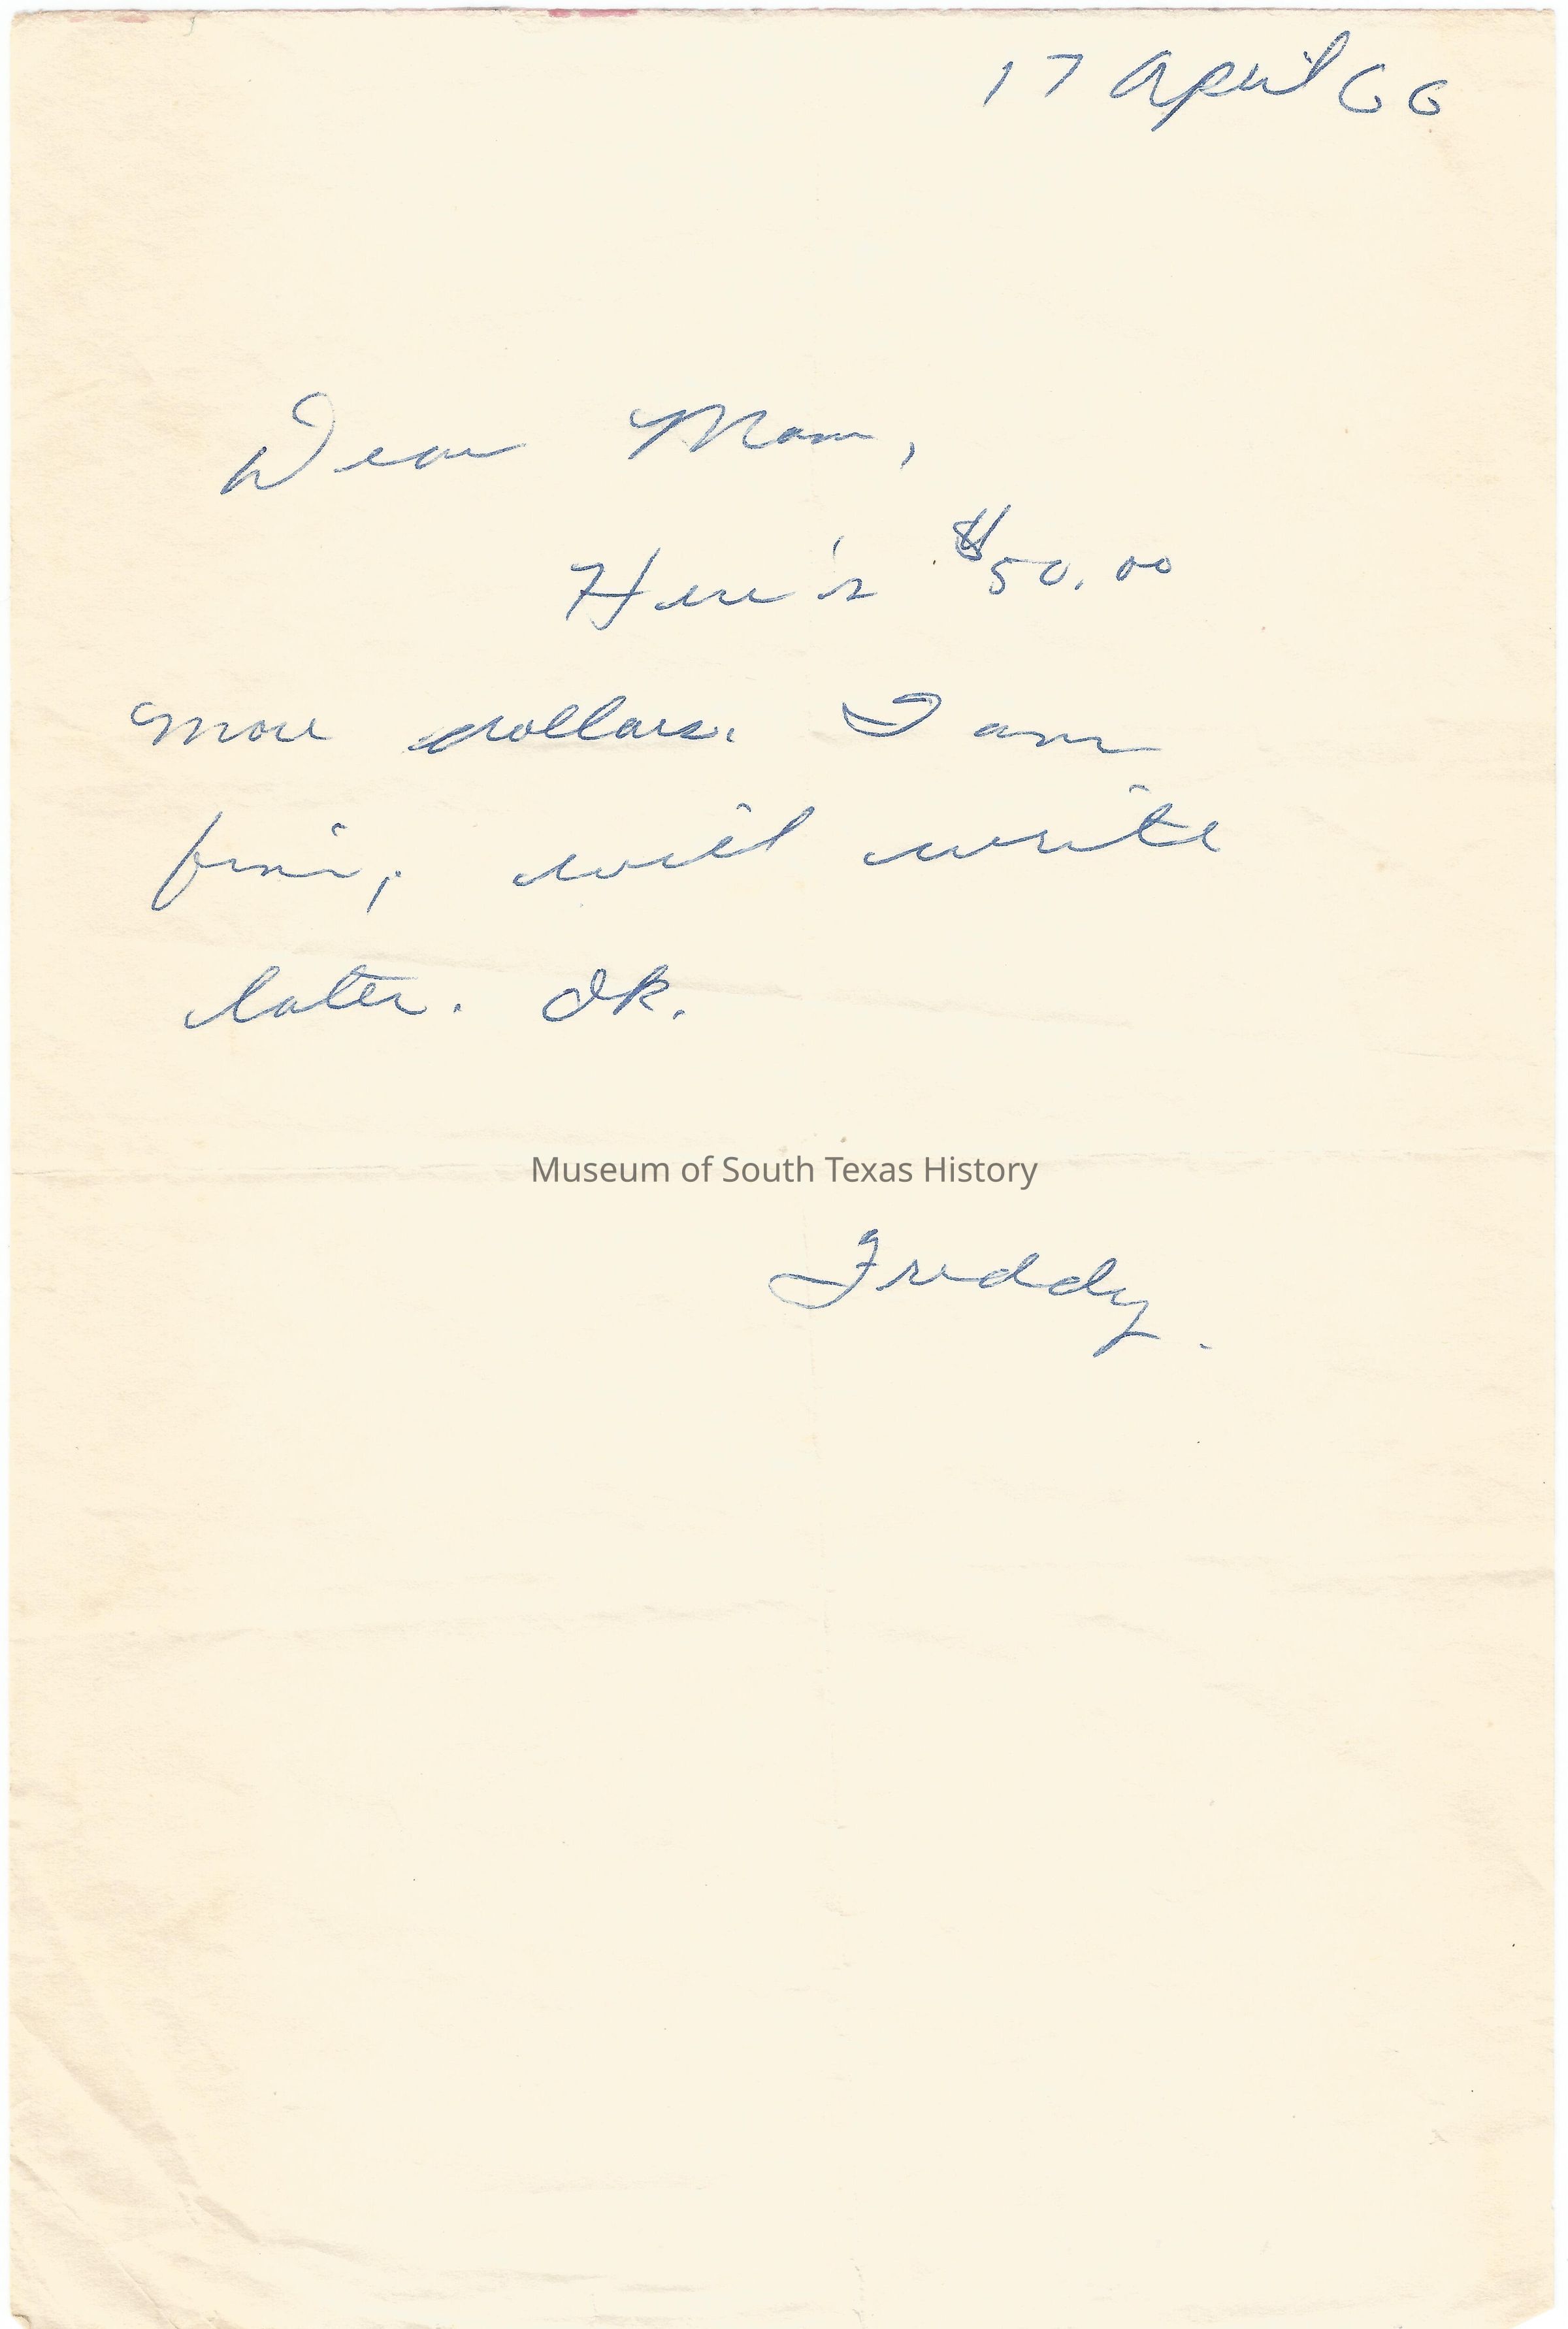 17 April 66
Dear Mom,
Here's $50.00
more dollars. I am
fine, will write
later. Ok.
Museum of South Texas History
Freddy.